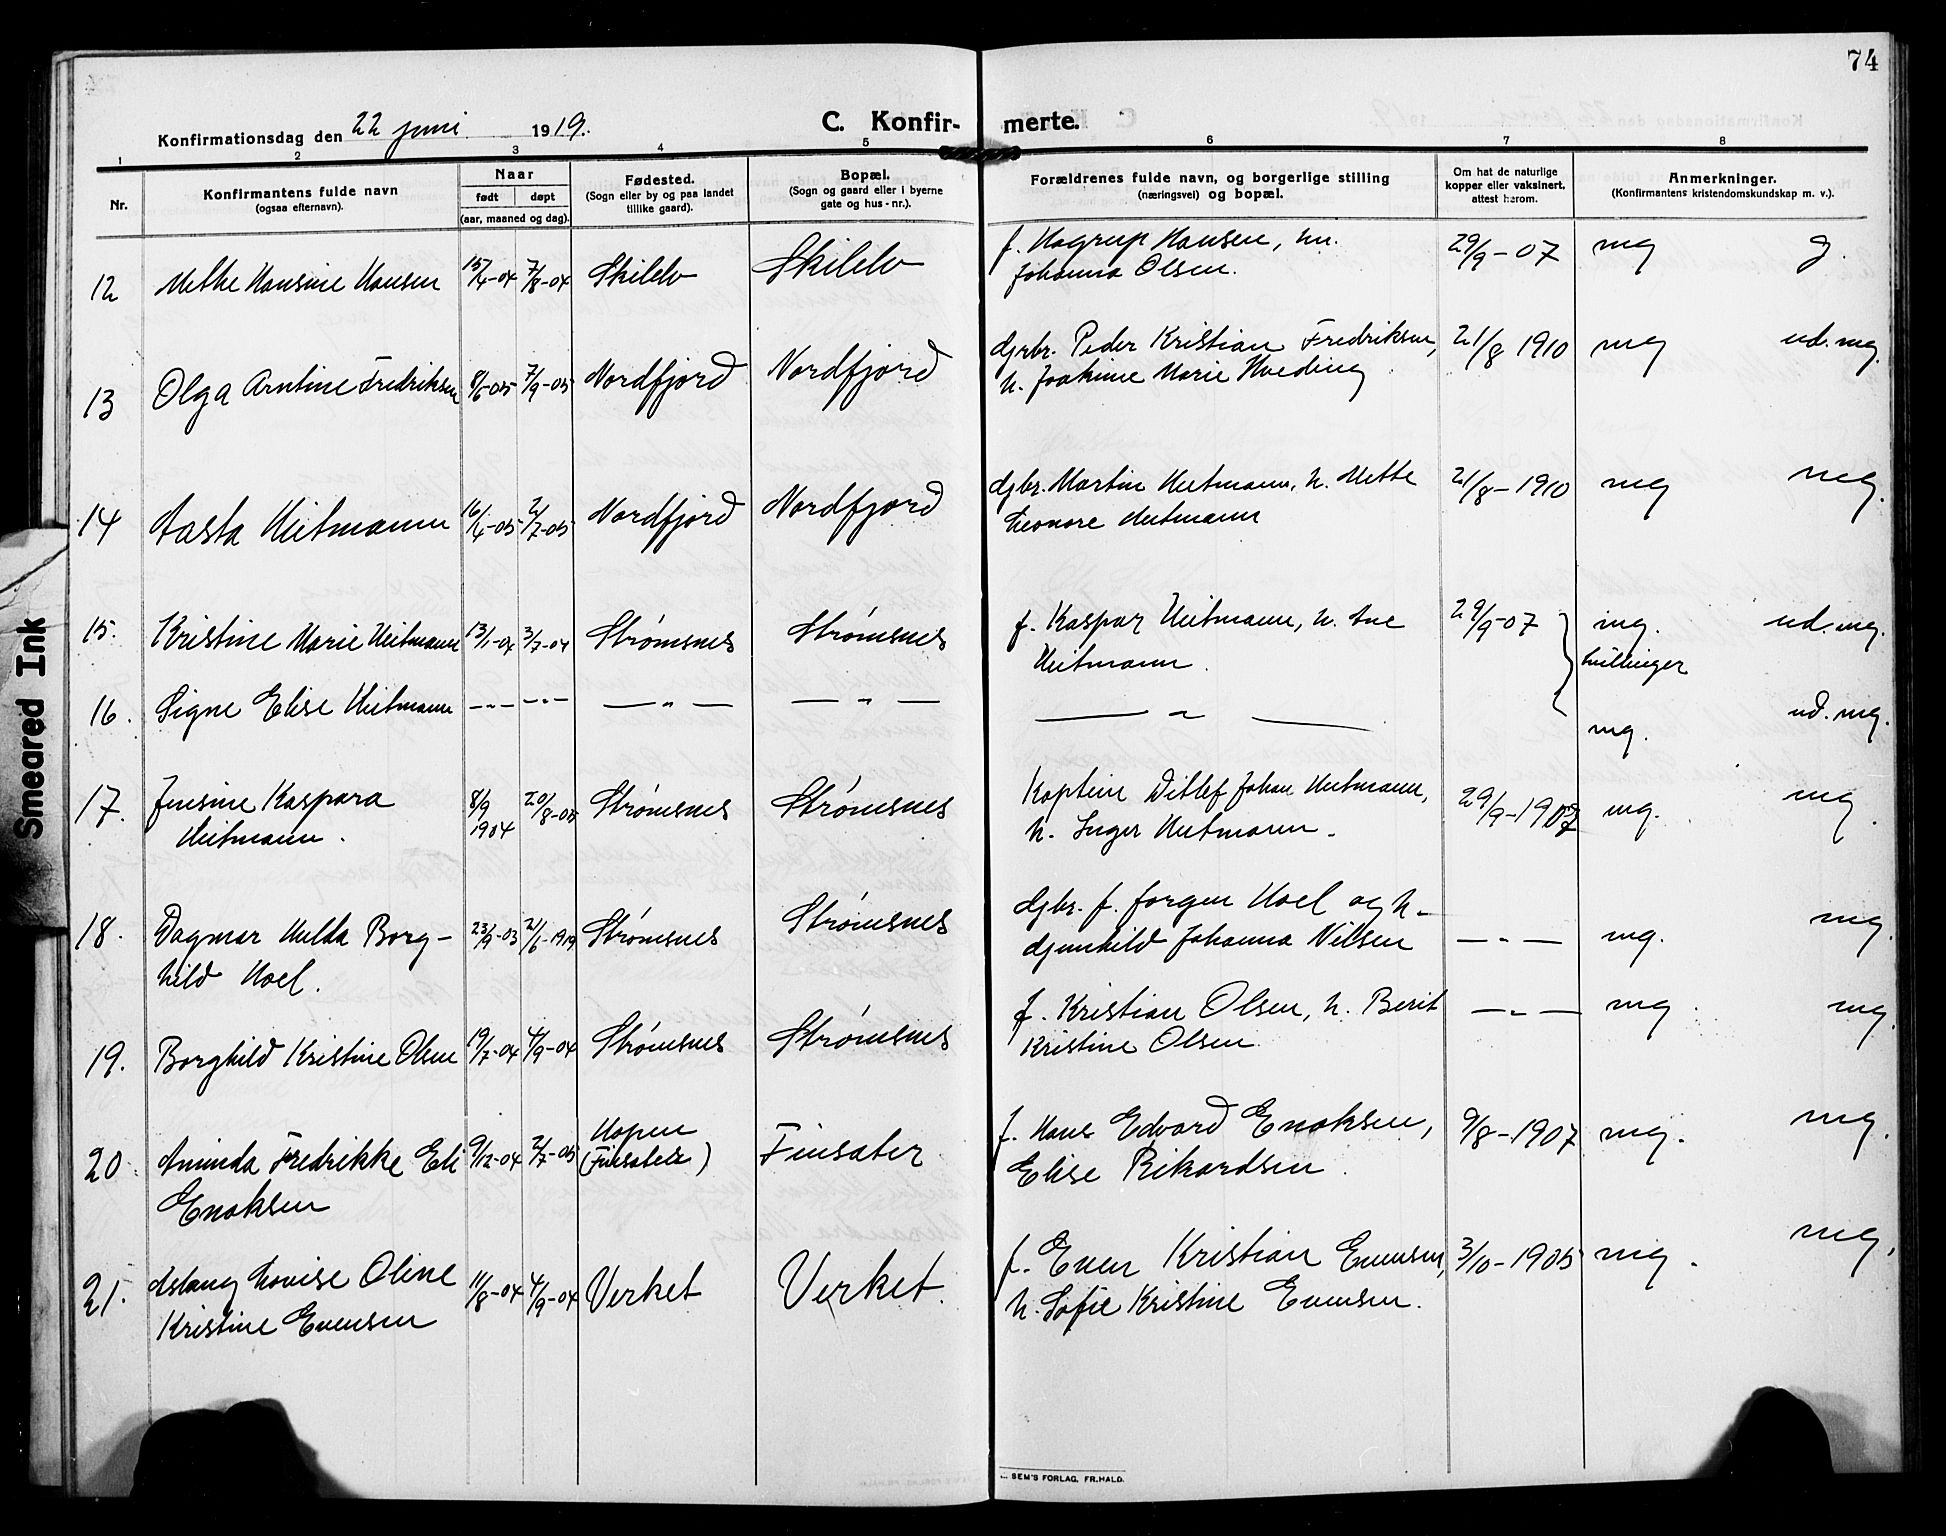 74
Konfirmationsdag den 22 juni 1919.
C. Konfir- merte.
1 2 3 4 5 6 7 8
Nr.
Konfirmantens fulde navn
(ogsaa efternavn).
Naar
født døpt
(aar, maaned og dag).
Fødested.
(Sogn eller by og paa landet
tillike gaard).
Bopæl.
(Sogn og gaard eller i byerne
gate og hus-nr.).
Forældrenes fulde navn, og borgerlige stilling
(næringsvei) og bopæl.
Om hat de naturlige
kopper eller vaksinert,
attest herom.
Anmerkninger.
(Konfirmantens kristendomskundskap m. v.).
12 Methe Hansine Hansen 15/4-04 7/8-04 Skilelv Skilelv f. Hagrup Hansen, hu. 29/9-07 mg g.
Johanna Olsen.
13 Olga Arntine Fredriksen 8/6-05 7/9-05 Nordfjord Nordfjord gbr. Peder Kristian Fredriksen, 21/8 1910 mg ud. mg.
h. Joakime Marie Hveding
14 Aasta Heitmann 16/4-05 2/7-05 Nordfjord Nordfjord gbr. Martin Heitmann, h. Mette 21/8-1910 mg mg.
Leonore Heitmann
15. Kristine Marie Heitmann 13/1-04 3/7-04 Strømsnes Strømsnes f. Kaspar Heitmann, h. Ane 29/9-07 mg. ud. mg.
Heitmann. tvillinger
16. Signe Elise Heitmann -"- -"- — " — — " — — " — mg. ud. mg.
17. Jensine Kaspara 8/9 1904 20/8-05 Strømsnes Strømsnes Kaptein Ditlef Johan Heitmann, 29/9-1907 mg. mg.
Heitmann. h. Inger Heitmann.
18. Dagmar Hulda Borg- 23/9-03 2/6-1919 Strømsnes Strømsnes gbr. f. Jørgen Hoel og h. —"— mg. mg.
hild Hoel. Johanna Nilsen
19. Borghild Kristine Olsen 19/7-04 4/9-04 Strømsnes Strømsnes f. Kristian Olsen, h. Berit —"— mg. mg.
Kristine Olsen.
20 Aminda Fredrikke Eli 9/12-04 2/7-05 Hopen Finsæter f. Hans Edvard Enoksen, 9/8-1907 mg. mg.
Enoksen (Finsæter) Elise Rikardsen.
21. Aslaug Lovise Oline 11/8-04 4/9-04 Verket Verket. f. Even Kristian Evensen, 3/10-1905 mg. mg.
Kristine Evensen h. Sofie Kristine Evensen.
SEM'S FORLAG, FR.HALD.
Smeared Ink